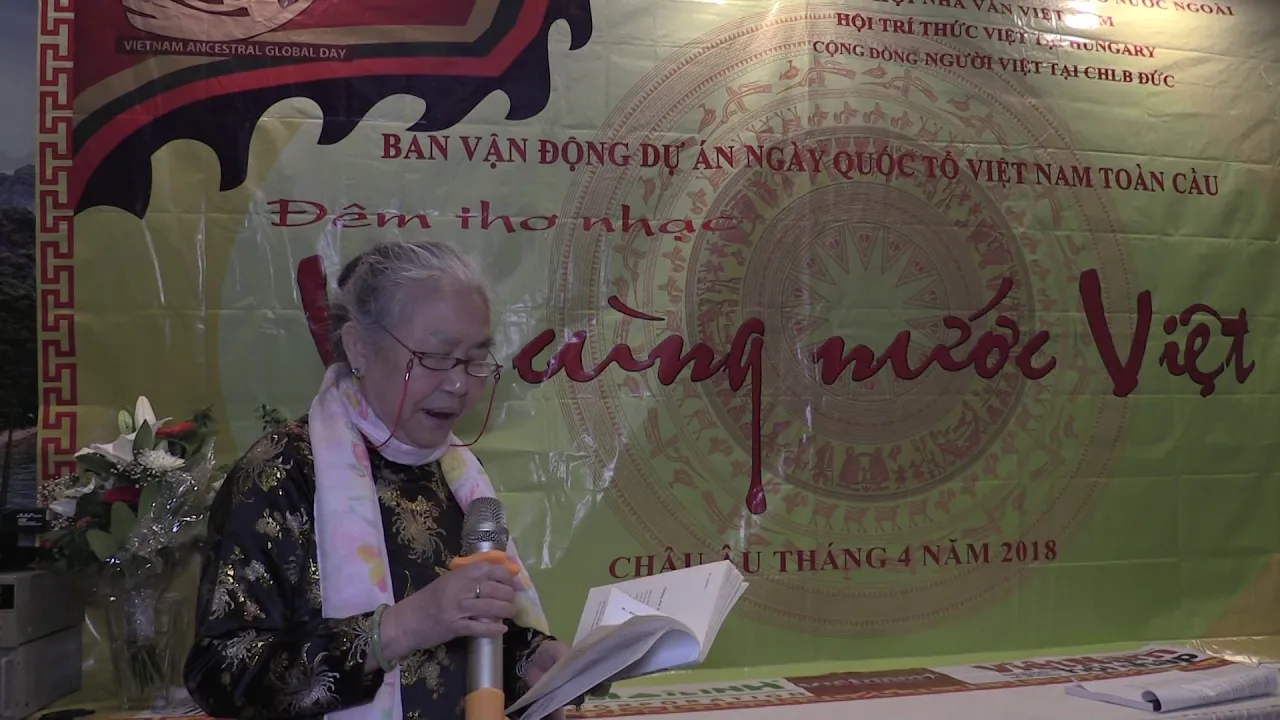 VIETNAM ANCESTRAL GLOBAL DAY
NƯỚC NGOÀI
NHÀ VĂN VIỆT NAM
HỘI TRÍ THỨC VIỆT TẠI HUNGARY
CỘNG ĐỒNG NGƯỜI VIỆT TẠI CHLB ĐỨC
BAN VẬN ĐỘNG DỰ ÁN NGÀY QUỐC TỔ VIỆT NAM TOÀN CẦU
Đêm thơ nhạc
cùng nước Việt
CHÂU ÂU THÁNG 4 NĂM 2018